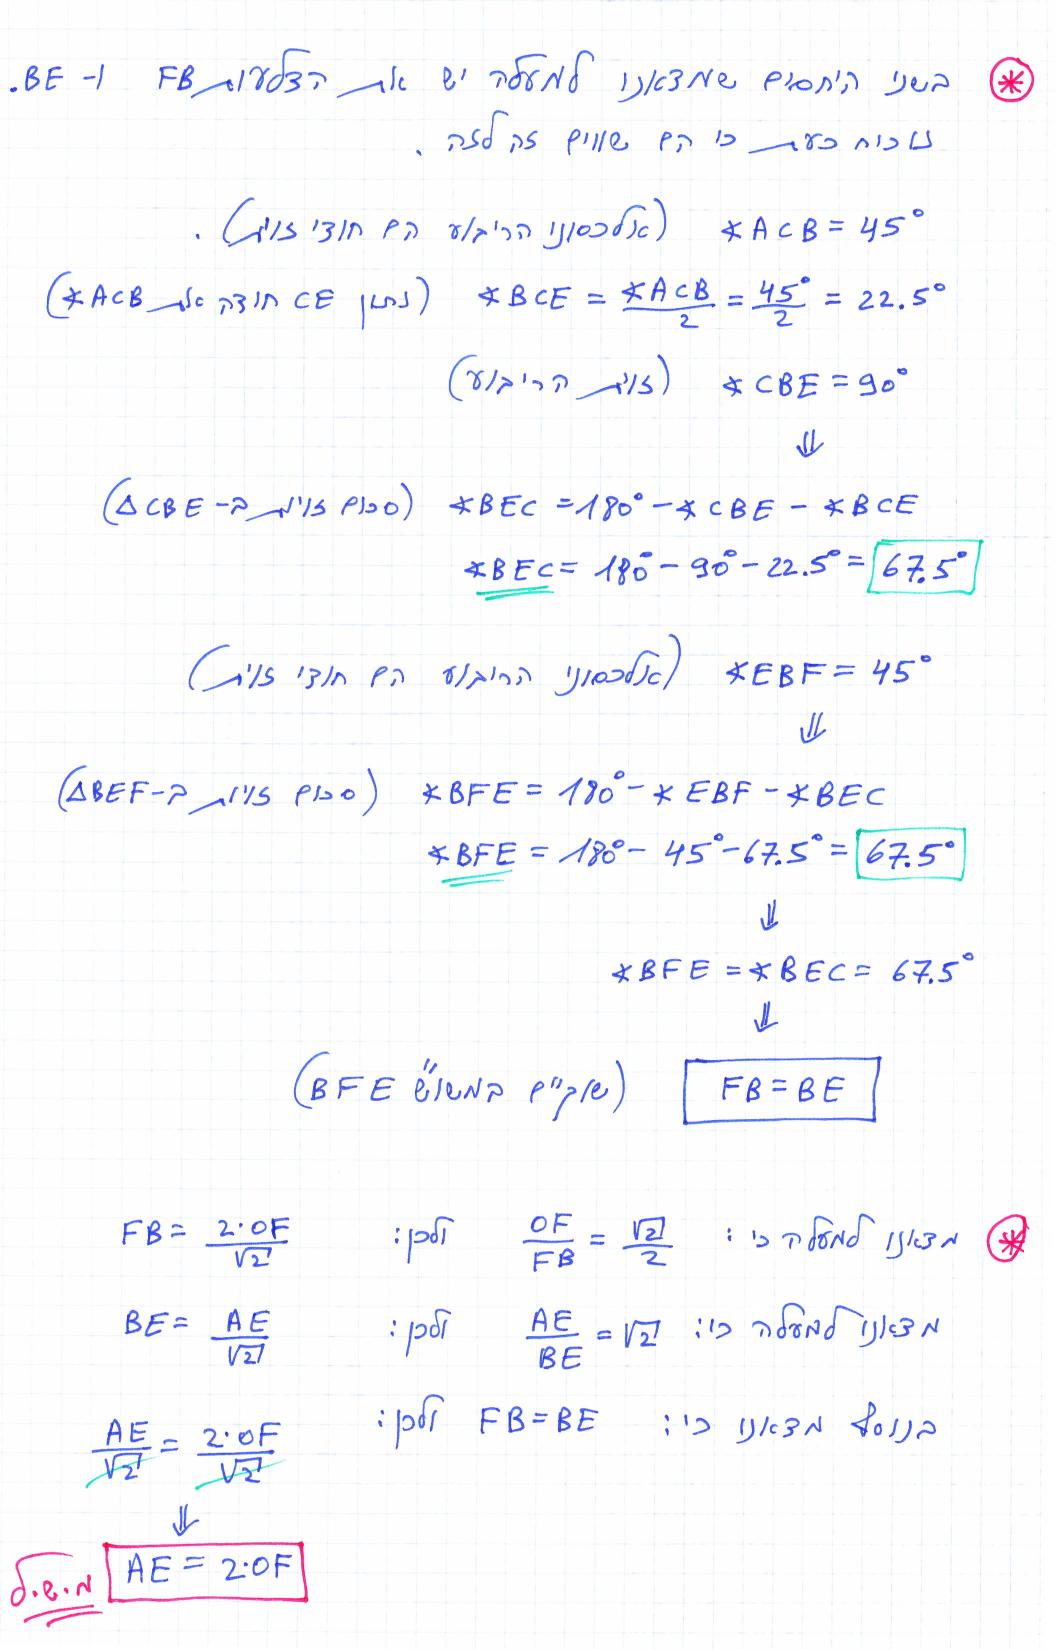 ⊛ בשני היחסים שמצאנו למעלה יש את הצלעות FB ו- BE.
נוכיח כעת כי הם שווים זה לזה.
∢ACB = 45° (אלכסוני הריבוע הם חוצי זווית).
∢BCE = ∢ACB/2 = 45°/2 = 22.5° (נתון CE חוצה את ∢ACB)
∢CBE = 90° (זווית הריבוע)
⇓
∢BEC = 180° - ∢CBE - ∢BCE (סכום זווית ב- ΔCBE)
∢BEC = 180° - 90° - 22.5° = 67.5°
∢EBF = 45° (אלכסוני הריבוע הם חוצי זווית)
⇓
∢BFE = 180° - ∢EBF - ∢BEC (סכום זווית ב- ΔBEF)
∢BFE = 180° - 45° - 67.5° = 67.5°
⇓
∢BFE = ∢BEC = 67.5°
⇓
FB = BE (שוק"ם במשו"ש BFE)
⊛ מצאנו למעלה כי: OF/FB = √2/2 ולכן: FB = 2·OF/√2
מצאנו למעלה כי: AE/BE = √2 ולכן: BE = AE/√2
בנוסף מצאנו כי: FB = BE ולכן: AE/√2 = 2·OF/√2
⇓
AE = 2·OF מ.ש.ל